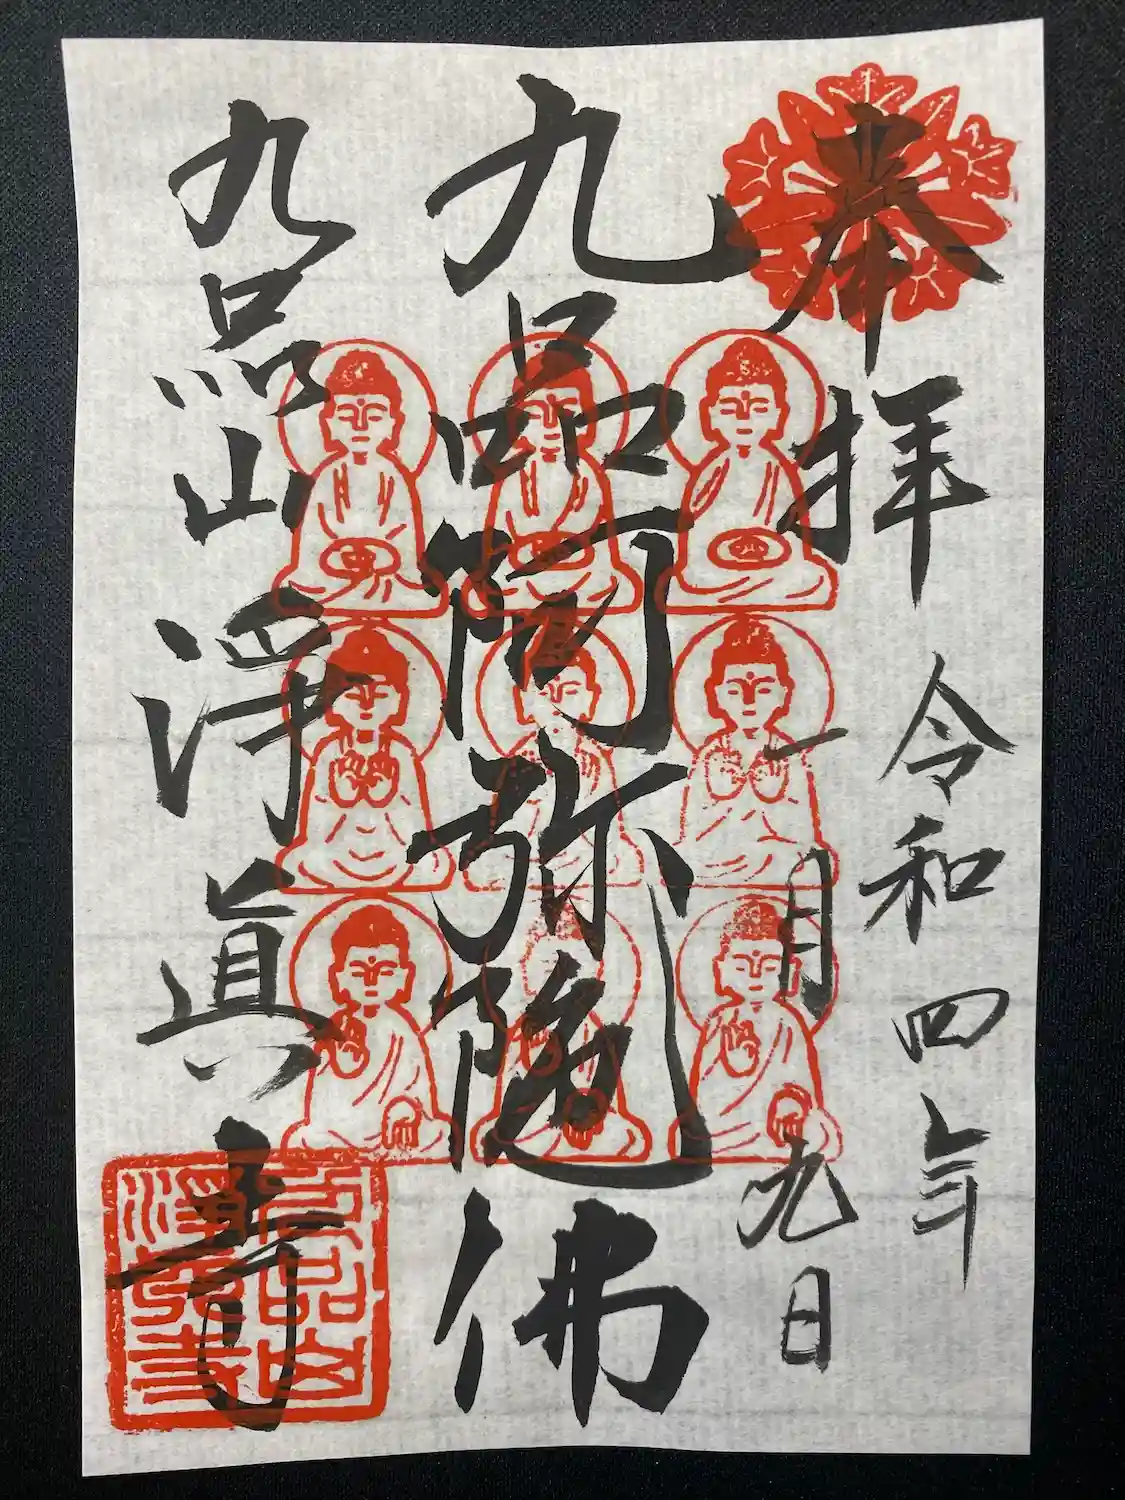 奉拝
令和四年
一月九日
九品阿弥陀佛
九品山淨眞寺
九品山
淨眞寺